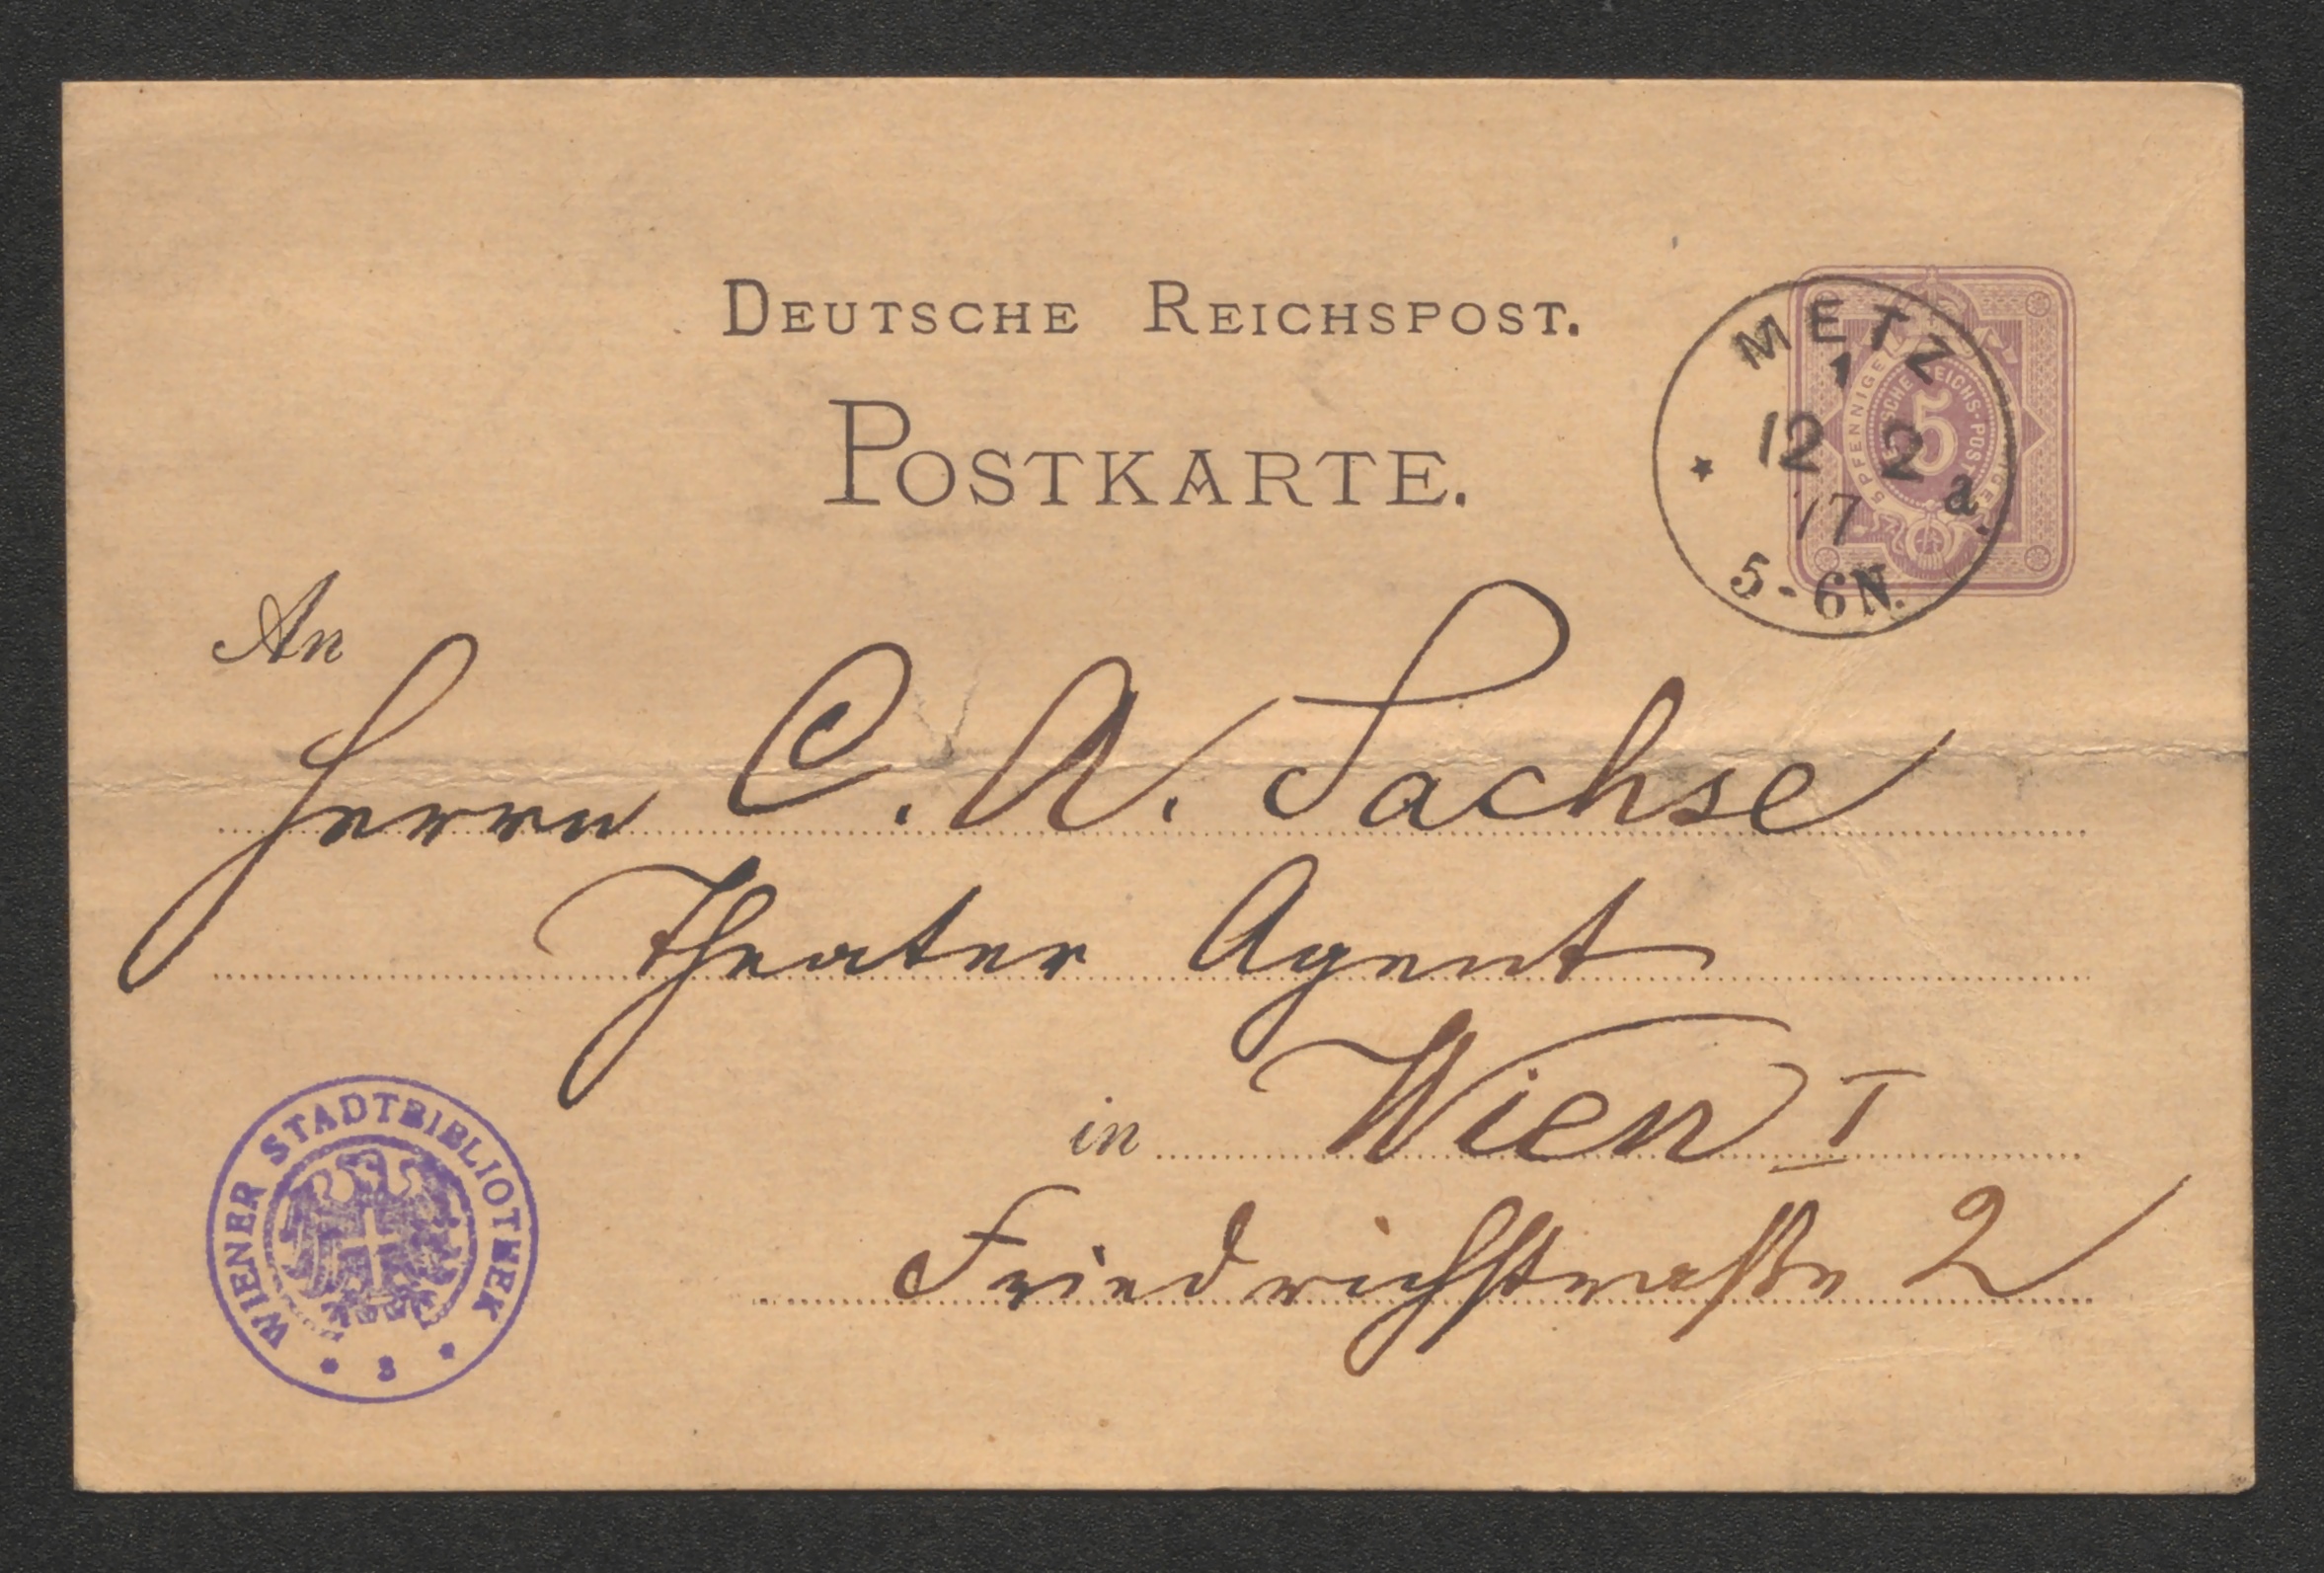 DEUTSCHE REICHSPOST.
POSTKARTE.
METZ
1
12 2
77 a.
5-6N.
5 PFENNIGE
REICHS-POST
5
An
Herrn C. A. Sachse
Theater Agent
in Wien I
Friedrichstraße 2
WIENER STADTBIBLIOTHEK